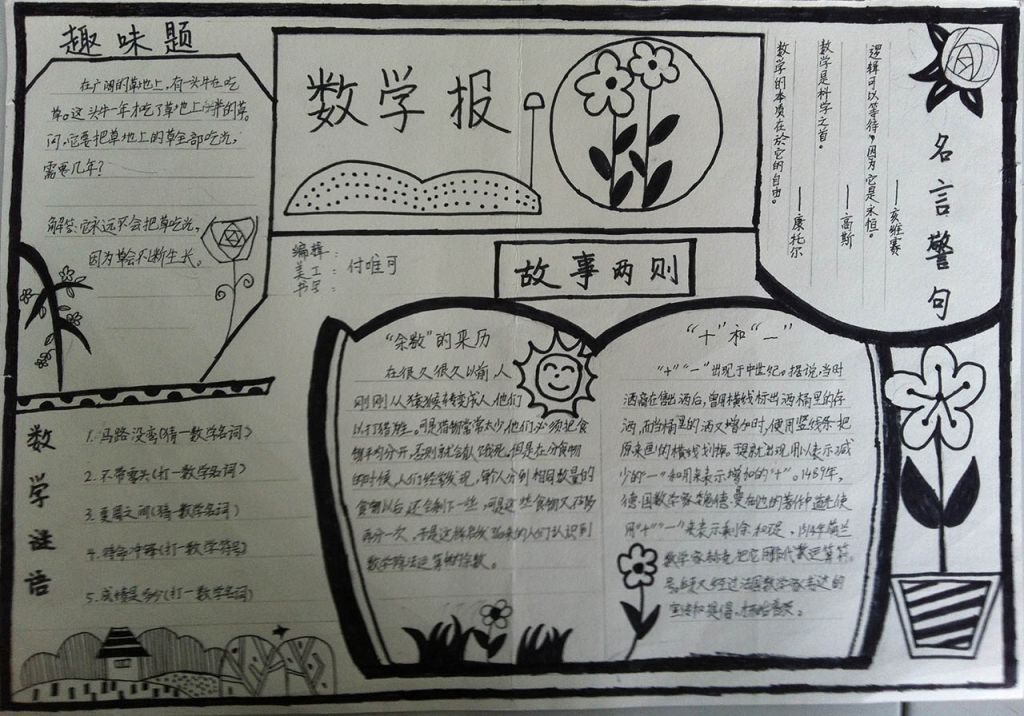 趣味题
在广阔的草地上,有一头牛在吃
草。这头牛一年才吃了草地上一半的草。
问,它要把草地上的草全部吃光,
需要几年?
解答:它永远不会把草吃光,
因为草会不断生长。
数学报
编辑:
美工:付唯可
书写:
名言警句
逻辑可以等待,因为它是永恒。
——亥维赛
数学是科学之首。
——高斯
数学的本质在於它的自由。
——康托尔
故事两则
“余数”的来历
在很久很久以前人
刚刚从猿猴转变成人,他们
以打猎为生。可是猎物常常太少,他们必须把食
物平均分开,否则就会有人饿死。但是在分食物
的时候,人们经常发现,每人分到相同数量的
食物以后,还会剩下一些,可是这些食物又不够
再分一次,于是这样
数学除法运算的余数。
“+”和“-”
“+”“-”出现于中世纪。据说当时
酒商在售出酒后,曾用横线标出酒桶里的存
酒,而当桶里的酒又增加时,使用竖线条把
原来画的横线划掉。于是就出现用以表示减
少的“-”和用来表示增加的“+”。1489年,
德国数学家魏德曼在他的著作中首先使
用“+”“-”来表示剩余和超过,1514年荷兰
数学家赫克把它用作代数运算符
号,后又经过法国数学家韦达的
宣传和提倡,才开始普及。
数学谜语
1.马路没弯(猜一数学名词)
2.不带零头(打一数学名词)
3.(猜一数学名词)
4.待命冲锋(打一数学符号)
5.成绩是多少(打一数学名词)